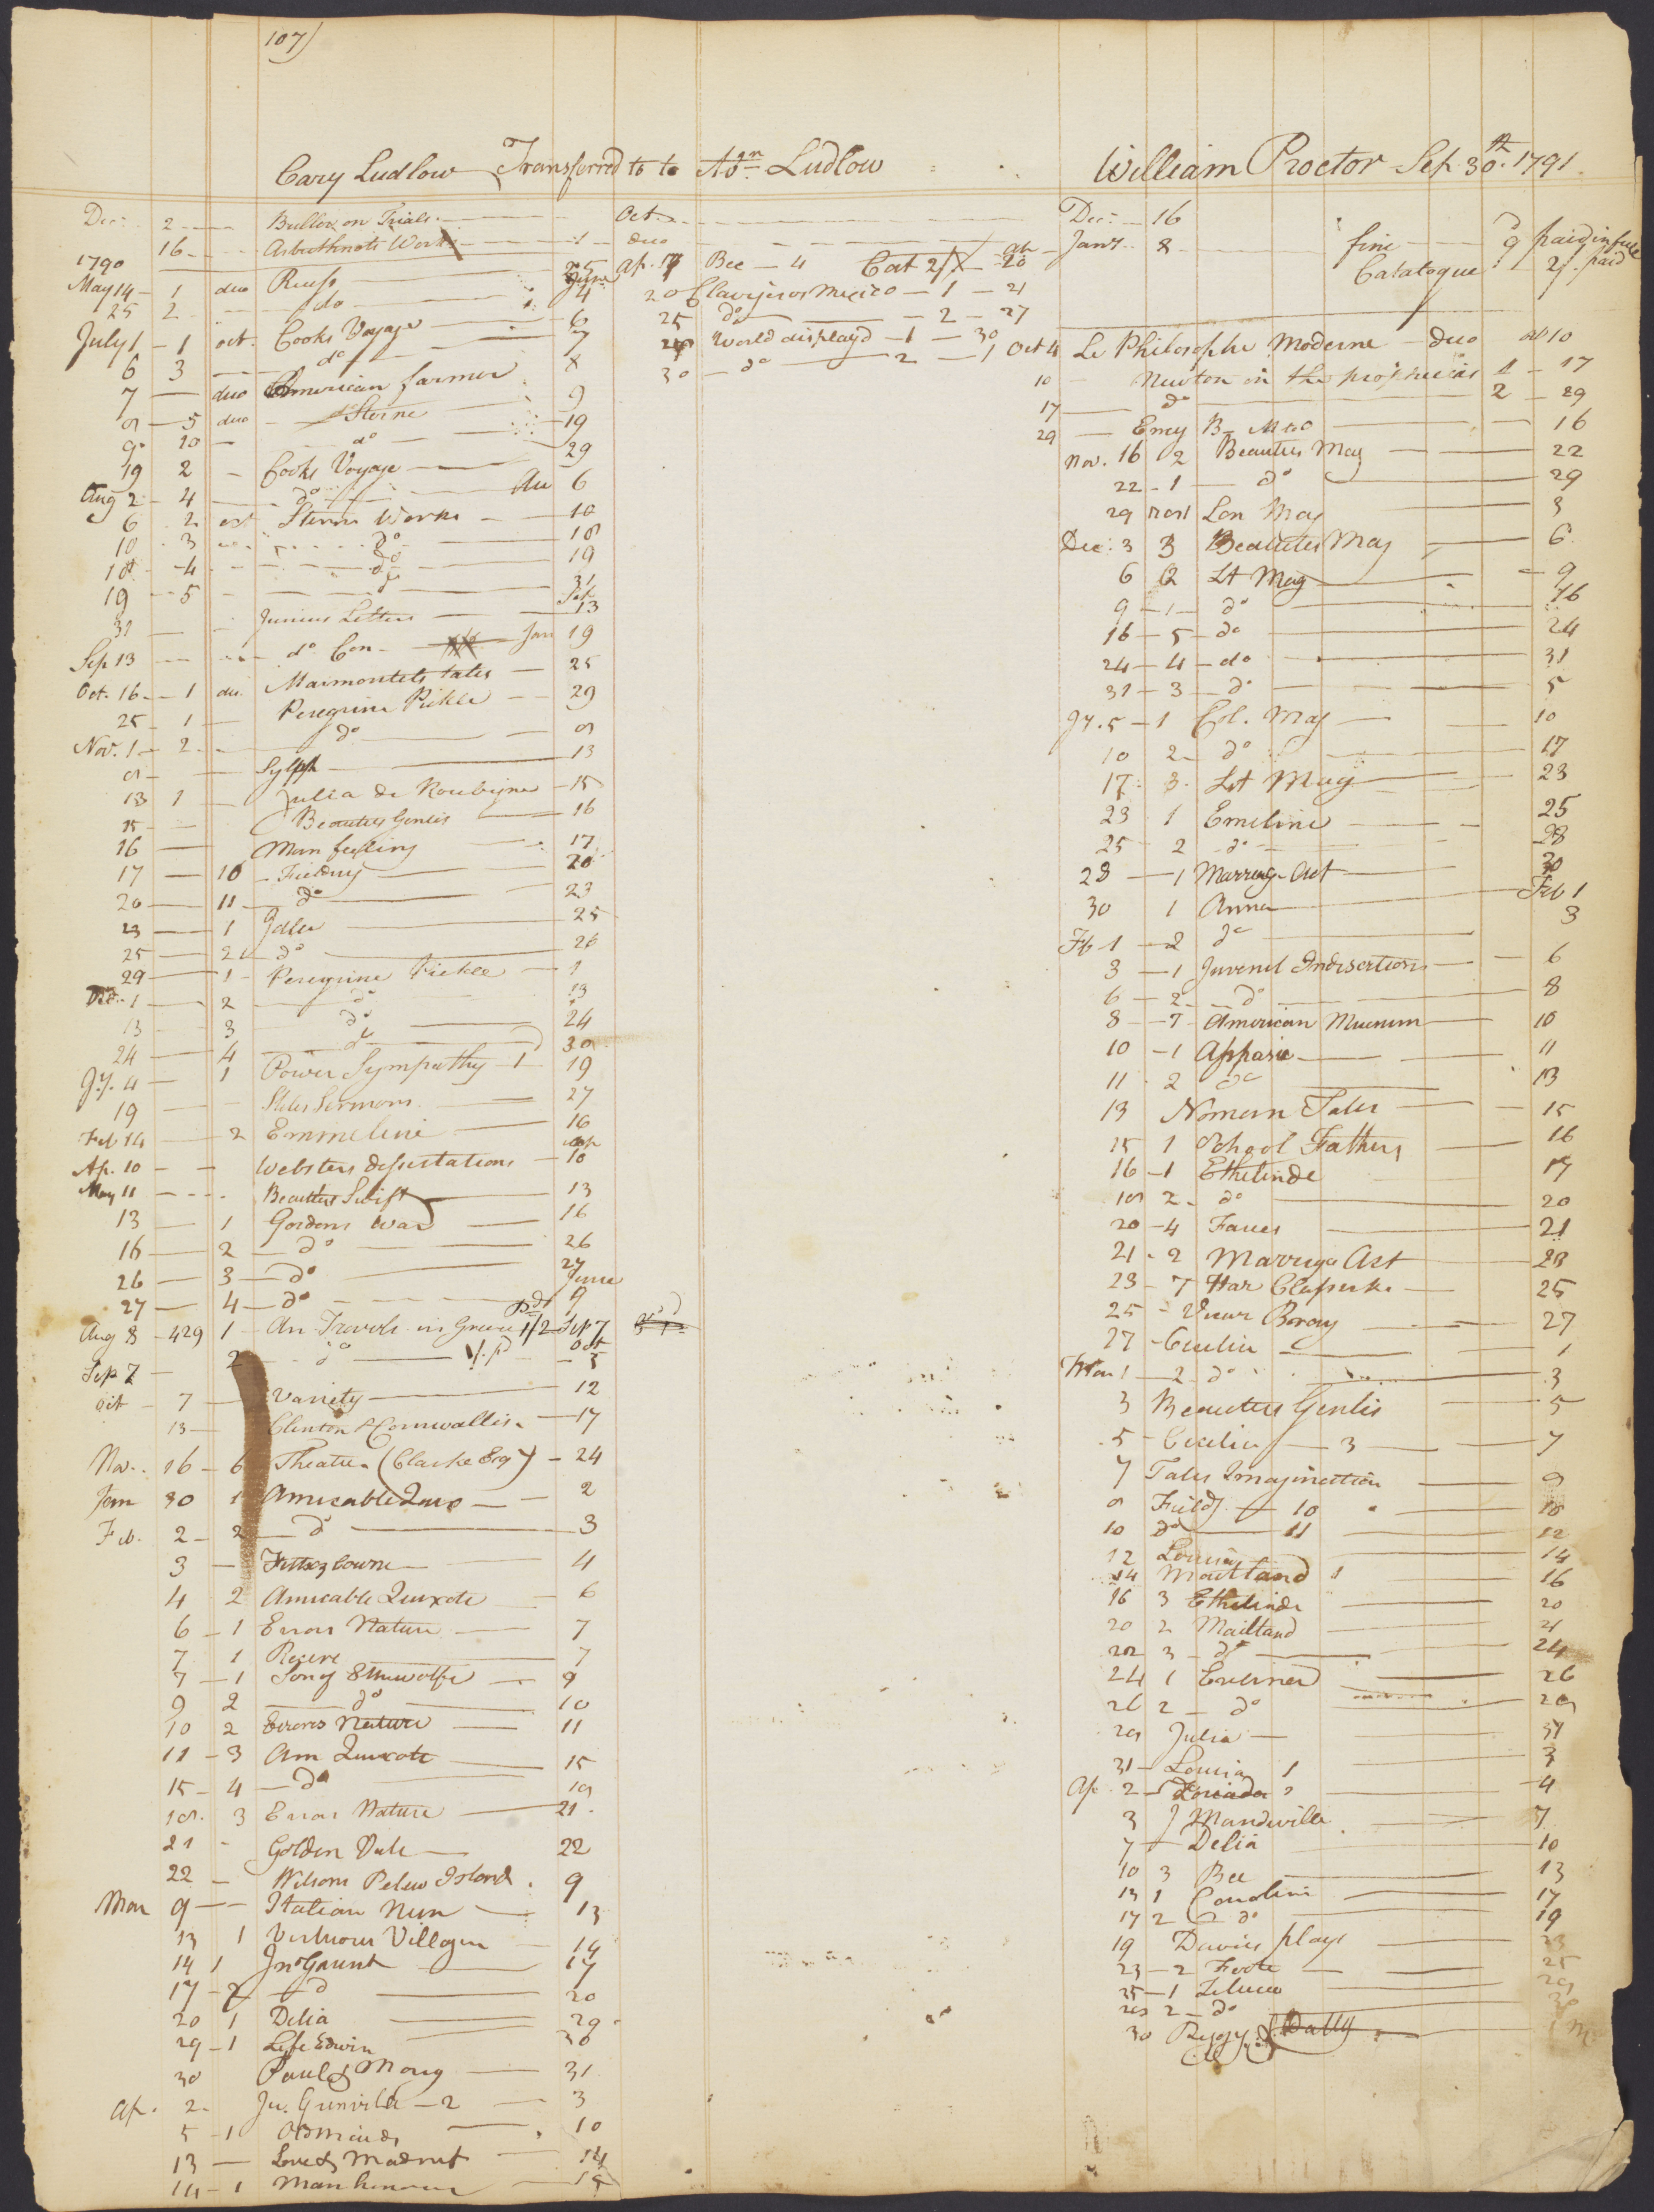 107)
Cary Ludlow Transferred to to Ludlow
Dec. 2 Buller on Trials Oct.
16 Arbuthnots Works 1 duo
1790
May 14 1 duo 25
25 2 do June 4
July 1 1 oct. Cooks Voyage 6
6 3 do 7
7 duo American farmer 8
8 5 duo Sterne 9
9 10 do 19
19 2 Cooks Voyage 29
Aug 2 4 do Au 6
6 2 oct Sterns Works 10
10 3 do 18
18 4 do 19
19 5 do 31
31 Junius Letters Sep 13
Sep 13 do Con Jan 19
Oct. 16 1 du. Marmontels tales 25
25 1 Peregrine Pickle 29
Nov. 1 2 do 8
8 Sylph 13
13 1 Julia de Roubigne 15
15 Beauties Genlis 16
16 Man feeling 17
17 10 Fielding 20
20 11 do 23
23 1 Idler 25
25 2 do 26
29 1 Peregrine Pickle 1
Dec. 1 2 do 13
13 3 do 24
24 4 do 30
Jy. 4 1 Power Sympathy 1 19
19 Stiles Sermons 27
Feb 14 2 Emmeline 16
Ap. 10 Websters dissertations Ap 18
May 11 Beauties Swift 13
13 1 Gordons War 16
16 2 do 26
26 3 do 27
27 4 do June 9
Aug 8 429 1 An Travels in Greece 1/2 Sep 7
Sep 7 2 do Oct 5
Oct 7 Variety 12
13 Clinton & Cornwallis 17
Nov. 16 6 Theatre (Clarke Esq) 24
Jan 30 1 Amicable Quixo 2
Feb. 2 2 do 3
3 4
4 2 Amicable Quixote 6
6 1 Errors Nature 7
7 1 Recess 7
7 1 Song Ethelwolfe 9
9 2 do 10
10 2 Errors Nature 11
11 3 Am Quixote 15
15 4 do 18
18 3 Errors Nature 21
21 Golden Vale 22
22 Wilsons Pelew Island 9
Mar 9 Italian Nun 13
13 1 Virtuous Villager 14
14 1 Jno Gaunt 17
17 2 do 20
20 1 Delia 29
29 1 Life Edwin 30
30 Paul & Mary 31
Ap. 2 2 3
5 1 10
13 Love & Madness 14
14 1 Man honour
Ap. 17 Bee 4 Cat 2/ Ap 20
20 Clavijeros Mexico 1 21
25 do 2 27
28 World display'd 1 30
30 do 2 1
William Proctor Sep. 30th 1791
Dec. 16
Jany. 8 fine 9d paid in full
Catalogue 2/. paid
Oct 4 Le Philosophe Moderne duo 10
10 Newton on the prophecies 1 17
17 do 2 29
29 Ency B. 16
Nov. 16 2 Beauties Mag 22
22 1 do 29
29 Lon Mag 3
Dec. 3 3 Beauties Mag 6
6 2 Lt Mag 9
9 1 do 16
16 5 do 24
24 4 do 31
31 3 do 5
Jy. 5 1 Col. Mag 10
10 2 do 17
17 3 Lt Mag 23
23 1 Emeline 25
25 2 do 28
28 1 Marriage Act 30
30 1 Anna Feb 1
Fb 1 2 do 3
3 1 Juvenil Indiscretions 6
6 2 do 8
8 7 American Museum 10
10 1 Aspasia 11
11 2 do 13
13 Norman Tales 15
15 1 School Fathers 16
16 1 Ethelinde 17
18 2 do 20
20 4 Fanes 21
21 2 Marriage Act 23
23 7 Har 25
25 Vicar Bray 27
27 Cecilia 1
Mar 1 2 do 3
3 Beauties Genlis 5
5 Cecilia 3 7
7 Tales Imagination 9
8 Fieldg 10 10
10 do 11 12
12 Louisa 14
14 Maitland 1 16
16 3 Ethelinde 20
20 2 Maitland 21
22 3 do 24
24 1 Evelina 26
26 2 do 28
28 Julia 31
31 Louisa 1 3
Ap. 2 2 4
3 J Mandeville 7
7 Delia 10
10 3 Bee 13
13 1 Caroline 17
17 2 do 19
19 Davies plays 23
23 2 Foote 25
25 1 Zeluco 28
28 2 do 30
30 Peggy & Patty